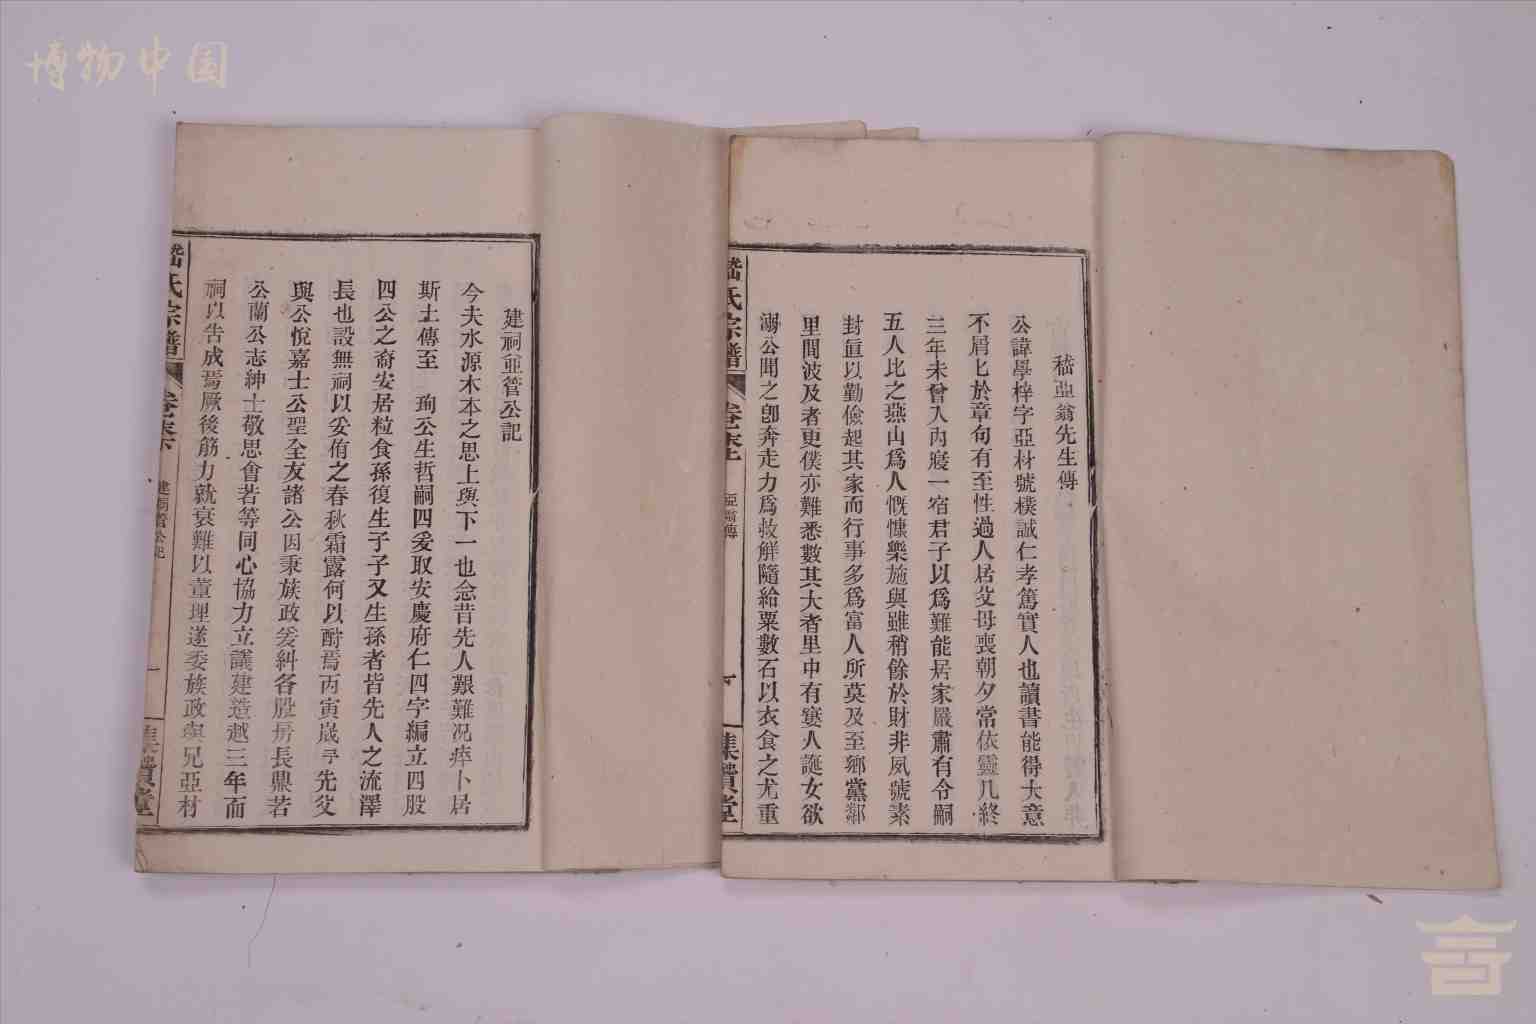 博物中国
嵇亞翁先生傳
公諱學梓字亞材號樸誠仁孝篤實人也讀書能得大意
不屑匕於章句有至性過人居父母喪朝夕常依靈几終
三年未曾入內寢一宿君子以爲難能居家嚴肅有令嗣
五人比之燕山爲人慨慷樂施與雖稍餘於財非夙號素
封逭以勤儉起其家而行事多爲富人所莫及至鄉黨鄰
里間波及者更僕亦難悉數其大者里中有窶人誕女欲
溺公聞之卽奔走力爲救解隨給粟數石以衣食之尤重
嵇氏宗譜
卷末上
亞翁傳
一
集賢堂
建祠並管公記
今夫水源木本之思上與下一也念昔先人艱難况瘁卜居
斯土傳至 珣公生哲嗣四爰取安慶府仁四字編立四股
四公之裔安居粒食孫復生子子又生孫者皆先人之流澤
長也設無祠以妥侑之春秋霜露何以酧焉丙寅歲予先父
與公悅嘉士公聖全友諸公因秉族政爰糾各股房長鼎若
公蘭公志紳士敬思會若等同心協力立議建造越三年而
祠以告成焉厥後筋力就衰難以董理遂委族政與兄亞材
嵇氏宗譜
卷末下
建祠管公記
一
集賢堂